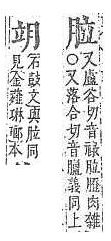 䏠
又盧谷切音祿䏠肉雜
〇又落合切音臘義同上
石鼓文與䏠同
見金薤琳瑯本